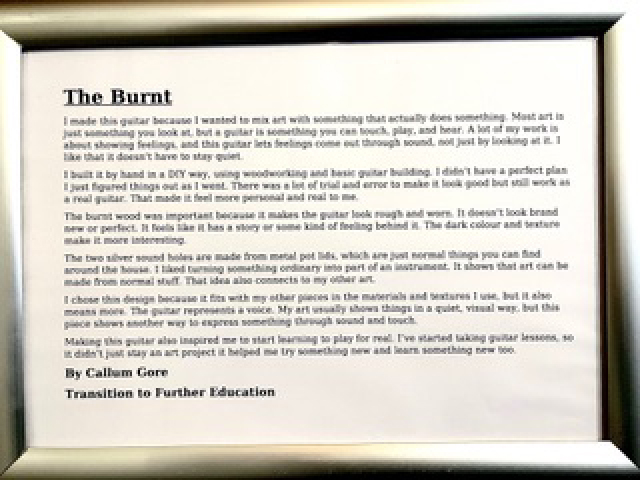 The Burnt
I made this guitar because I wanted to mix art with something that actually does something. Most art is
just something you look at, but a guitar is something you can touch, play, and hear. A lot of my work is
about showing feelings, and this guitar lets feelings come out through sound, not just by looking at it. I
like that it doesn't have to stay quiet.
I built it by hand in a DIY way, using woodworking and basic guitar building. I didn't have a perfect plan
I just figured things out as I went. There was a lot of trial and error to make it look good but still work as
a real guitar. That made it feel more personal and real to me.
The burnt wood was important because it makes the guitar look rough and worn. It doesn't look brand
new or perfect. It feels like it has a story or some kind of feeling behind it. The dark colour and texture
make it more interesting.
The two silver sound holes are made from metal pot lids, which are just normal things you can find
around the house. I liked turning something ordinary into part of an instrument. It shows that art can be
made from normal stuff. That idea also connects to my other art.
I chose this design because it fits with my other pieces in the materials and textures I use, but it also
means more. The guitar represents a voice. My art usually shows things in a quiet, visual way, but this
piece shows another way to express something through sound and touch.
Making this guitar also inspired me to start learning to play for real. I've started taking guitar lessons, so
it didn't just stay an art project it helped me try something new and learn something new too.
By Callum Gore
Transition to Further Education